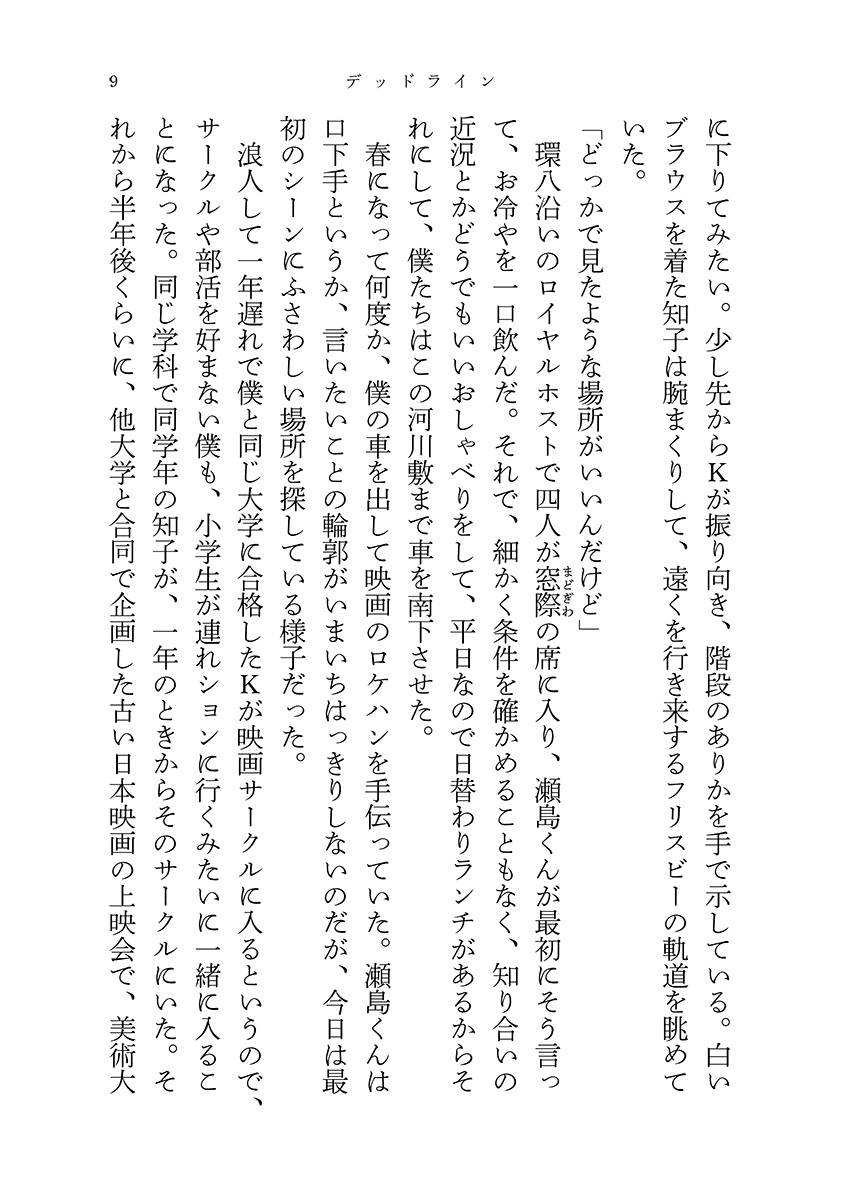 9
デッドライン
に下りてみたい。少し先からKが振り向き、階段のありかを手で示している。白い
ブラウスを着た知子は腕まくりして、遠くを行き来するフリスビーの軌道を眺めて
いた。
「どっかで見たような場所がいいんだけど」
環八沿いのロイヤルホストで四人が窓際の席に入り、瀬島くんが最初にそう言っ
まどぎわ
て、お冷やを一口飲んだ。それで、細かく条件を確かめることもなく、知り合いの
近況とかどうでもいいおしゃべりをして、平日なので日替わりランチがあるからそ
れにして、僕たちはこの河川敷まで車を南下させた。
春になって何度か、僕の車を出して映画のロケハンを手伝っていた。瀬島くんは
口下手というか、言いたいことの輪郭がいまいちはっきりしないのだが、今日は最
初のシーンにふさわしい場所を探している様子だった。
浪人して一年遅れで僕と同じ大学に合格したKが映画サークルに入るというので、
サークルや部活を好まない僕も、小学生が連れションに行くみたいに一緒に入るこ
とになった。同じ学科で同学年の知子が、一年のときからそのサークルにいた。そ
れから半年後くらいに、他大学と合同で企画した古い日本映画の上映会で、美術大